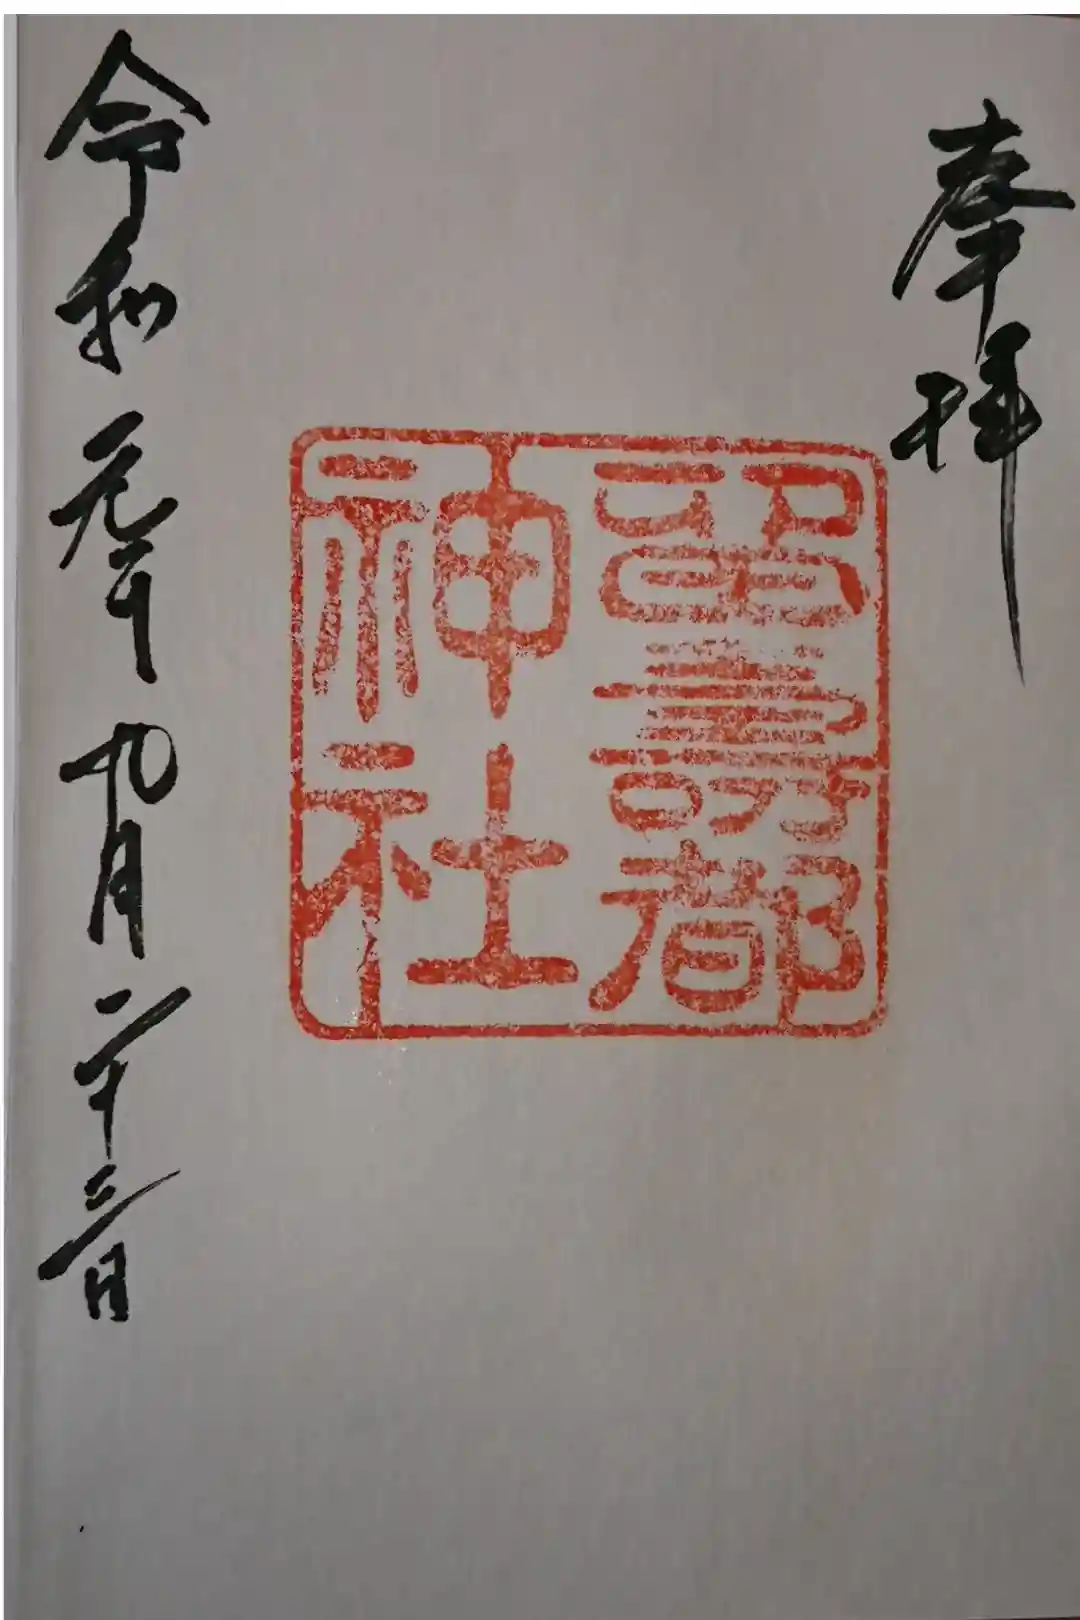 奉拝
都
神社
令和元年九月二十三日